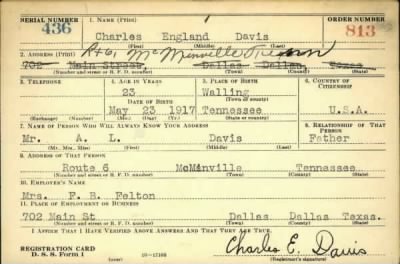 SERIAL NUMBER 1. NAME (Print) ORDER NUMBER
436 Charles England Davis 813
(First) (Middle) (Last)
2. ADDRESS (Print) Rt 6, McMinnville Tenn
702 Main Street, Dallas Dallas, Texas
(Number and street or R. F. D. number) (Town) (County) (State)
3. TELEPHONE 4. AGE IN YEARS 5. PLACE OF BIRTH 6. COUNTRY OF CITIZENSHIP
23 Walling
DATE OF BIRTH (Town or county)
May 23 1917 Tennessee U.S.A.
(Exchange) (Number) (Mo.) (Day) (Yr.) (State or country)
7. NAME OF PERSON WHO WILL ALWAYS KNOW YOUR ADDRESS 8. RELATIONSHIP OF THAT PERSON
Mr. A. L. Davis Father
(Mr., Mrs., Miss) (First) (Middle) (Last)
9. ADDRESS OF THAT PERSON
Route 6 McMinville Tennessee
(Number and street or R. F. D. number) (Town) (County) (State)
10. EMPLOYER'S NAME
Mrs. F. B. Felton
11. PLACE OF EMPLOYMENT OR BUSINESS
702 Main St Dallas Dallas Texas.
(Number and street or R. F. D. number) (Town) (County) (State)
I AFFIRM THAT I HAVE VERIFIED ABOVE ANSWERS AND THAT THEY ARE TRUE.
REGISTRATION CARD
D. S. S. Form 1 16—17105 Charles E. Davis
(Registrant's signature)